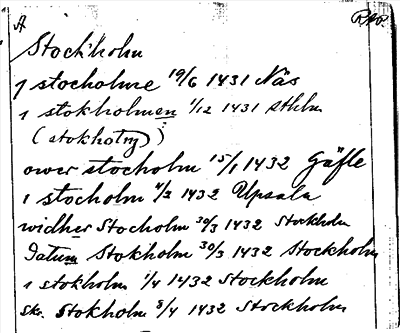 A RAp.
Stockholm
j stocholme 19/6 1431 Näs
i stokholmen 1/12 1431 Sthlm
(stokholm)
ower stocholm 15/1 1432 Gäfle
i stocholm 4/2 1432 Upsala
widher Stocholm 30/3 1432 Stockholm
Datum Stokholm 30/3 1432 Stockholm
i stokholm 1/4 1432 Stockholm
Skr. Stokholm 5/4 1432 Stockholm